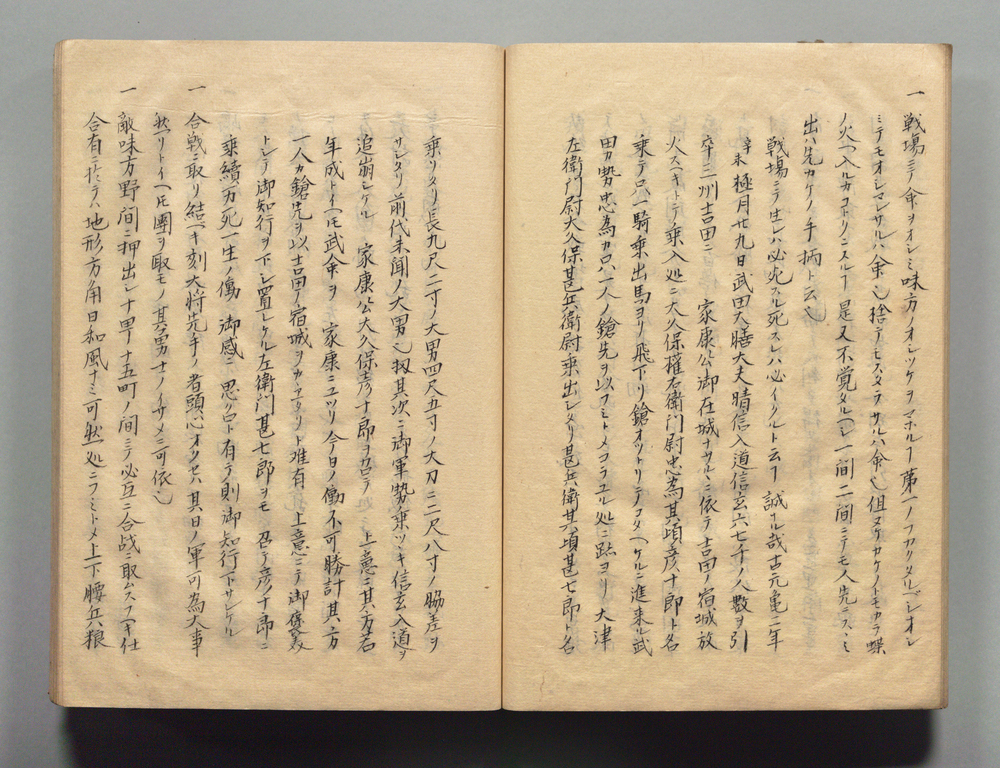 一 戦場ニテ命ヲオシミ味方ノオシツケヲマホルヿ第一ノフカクタルベシオシ
ミテモオシマレサルハ命也捨テモステラサルハ命也但ヌケカケノトモカラ蝶
ノ火ヘ入ルカコトクニスルヿ是又不覚タルヘシ一間二間ニテモ人先ニスヽミ
出ハ先カケノ手柄ト云也
戦場ニテ生レハ必死スル死スレハ必イクルト云ヿ誠ナル哉古元亀二年
辛未極月廿九日武田大膳大夫晴信入道信玄六七千ノ人数ヲ引
卒シ二州吉田ニ 家康公御在城ナサルニ依テ吉田ノ宿城放
火スヘキトテ乗入処ニ大久保權右衛門尉忠為其頃彦十郎ト名
乗テ只一騎乗出馬ヨリ飛下リ鎗オツトリテコタヘケルニ進来ル武
田カ勢忠為カ只一人ノ鎗先ヲ以フミトメコラユル処ニ跡ヨリ大津
左衛門尉大久保甚兵衛尉乗出シタリ甚兵衛其頃甚七郎ト名
乗ツタリ長九尺二寸ノ大男四尺五寸ノ大刀ニ二尺八寸ノ脇差ヲ
サシタリ前代未聞ノ大男也扨其次ニ御軍勢乗ツヽキ信玄入道ヲ
追崩シケル 家康公大久保彦十郎ヲ召テノ 上意ニ其方若
年成トイヘ𪜈武命ヲ 家康ニユツリ今日ノ働不可勝計其方
一人カ鎗先ヲ以吉田ノ宿城ヲカヽエタリト難有 上意ニテ御褒美
トシテ御知行ヲ下シ置レケル左衛門甚七郎ヲモ召テ彦十郎ニ
乗續万死一生ノ働 御感ニ思召ト有テ則御知行下サレケル
一 合戦ニ取リ結ヘキ刻大将先手ノ者頭心オクセハ其日ノ軍可為大事
然リトイヘ𪜈團ヲ取モノ其勇士ノイサメニ可依也
一 敵味方野間ニ押出シ十甲十五町ノ間ニテ必互ニ合战取ムスフヘキ仕
合有ニ於テハ地形方角日和風ナミ可然処ニフミトメ上下腰兵粮